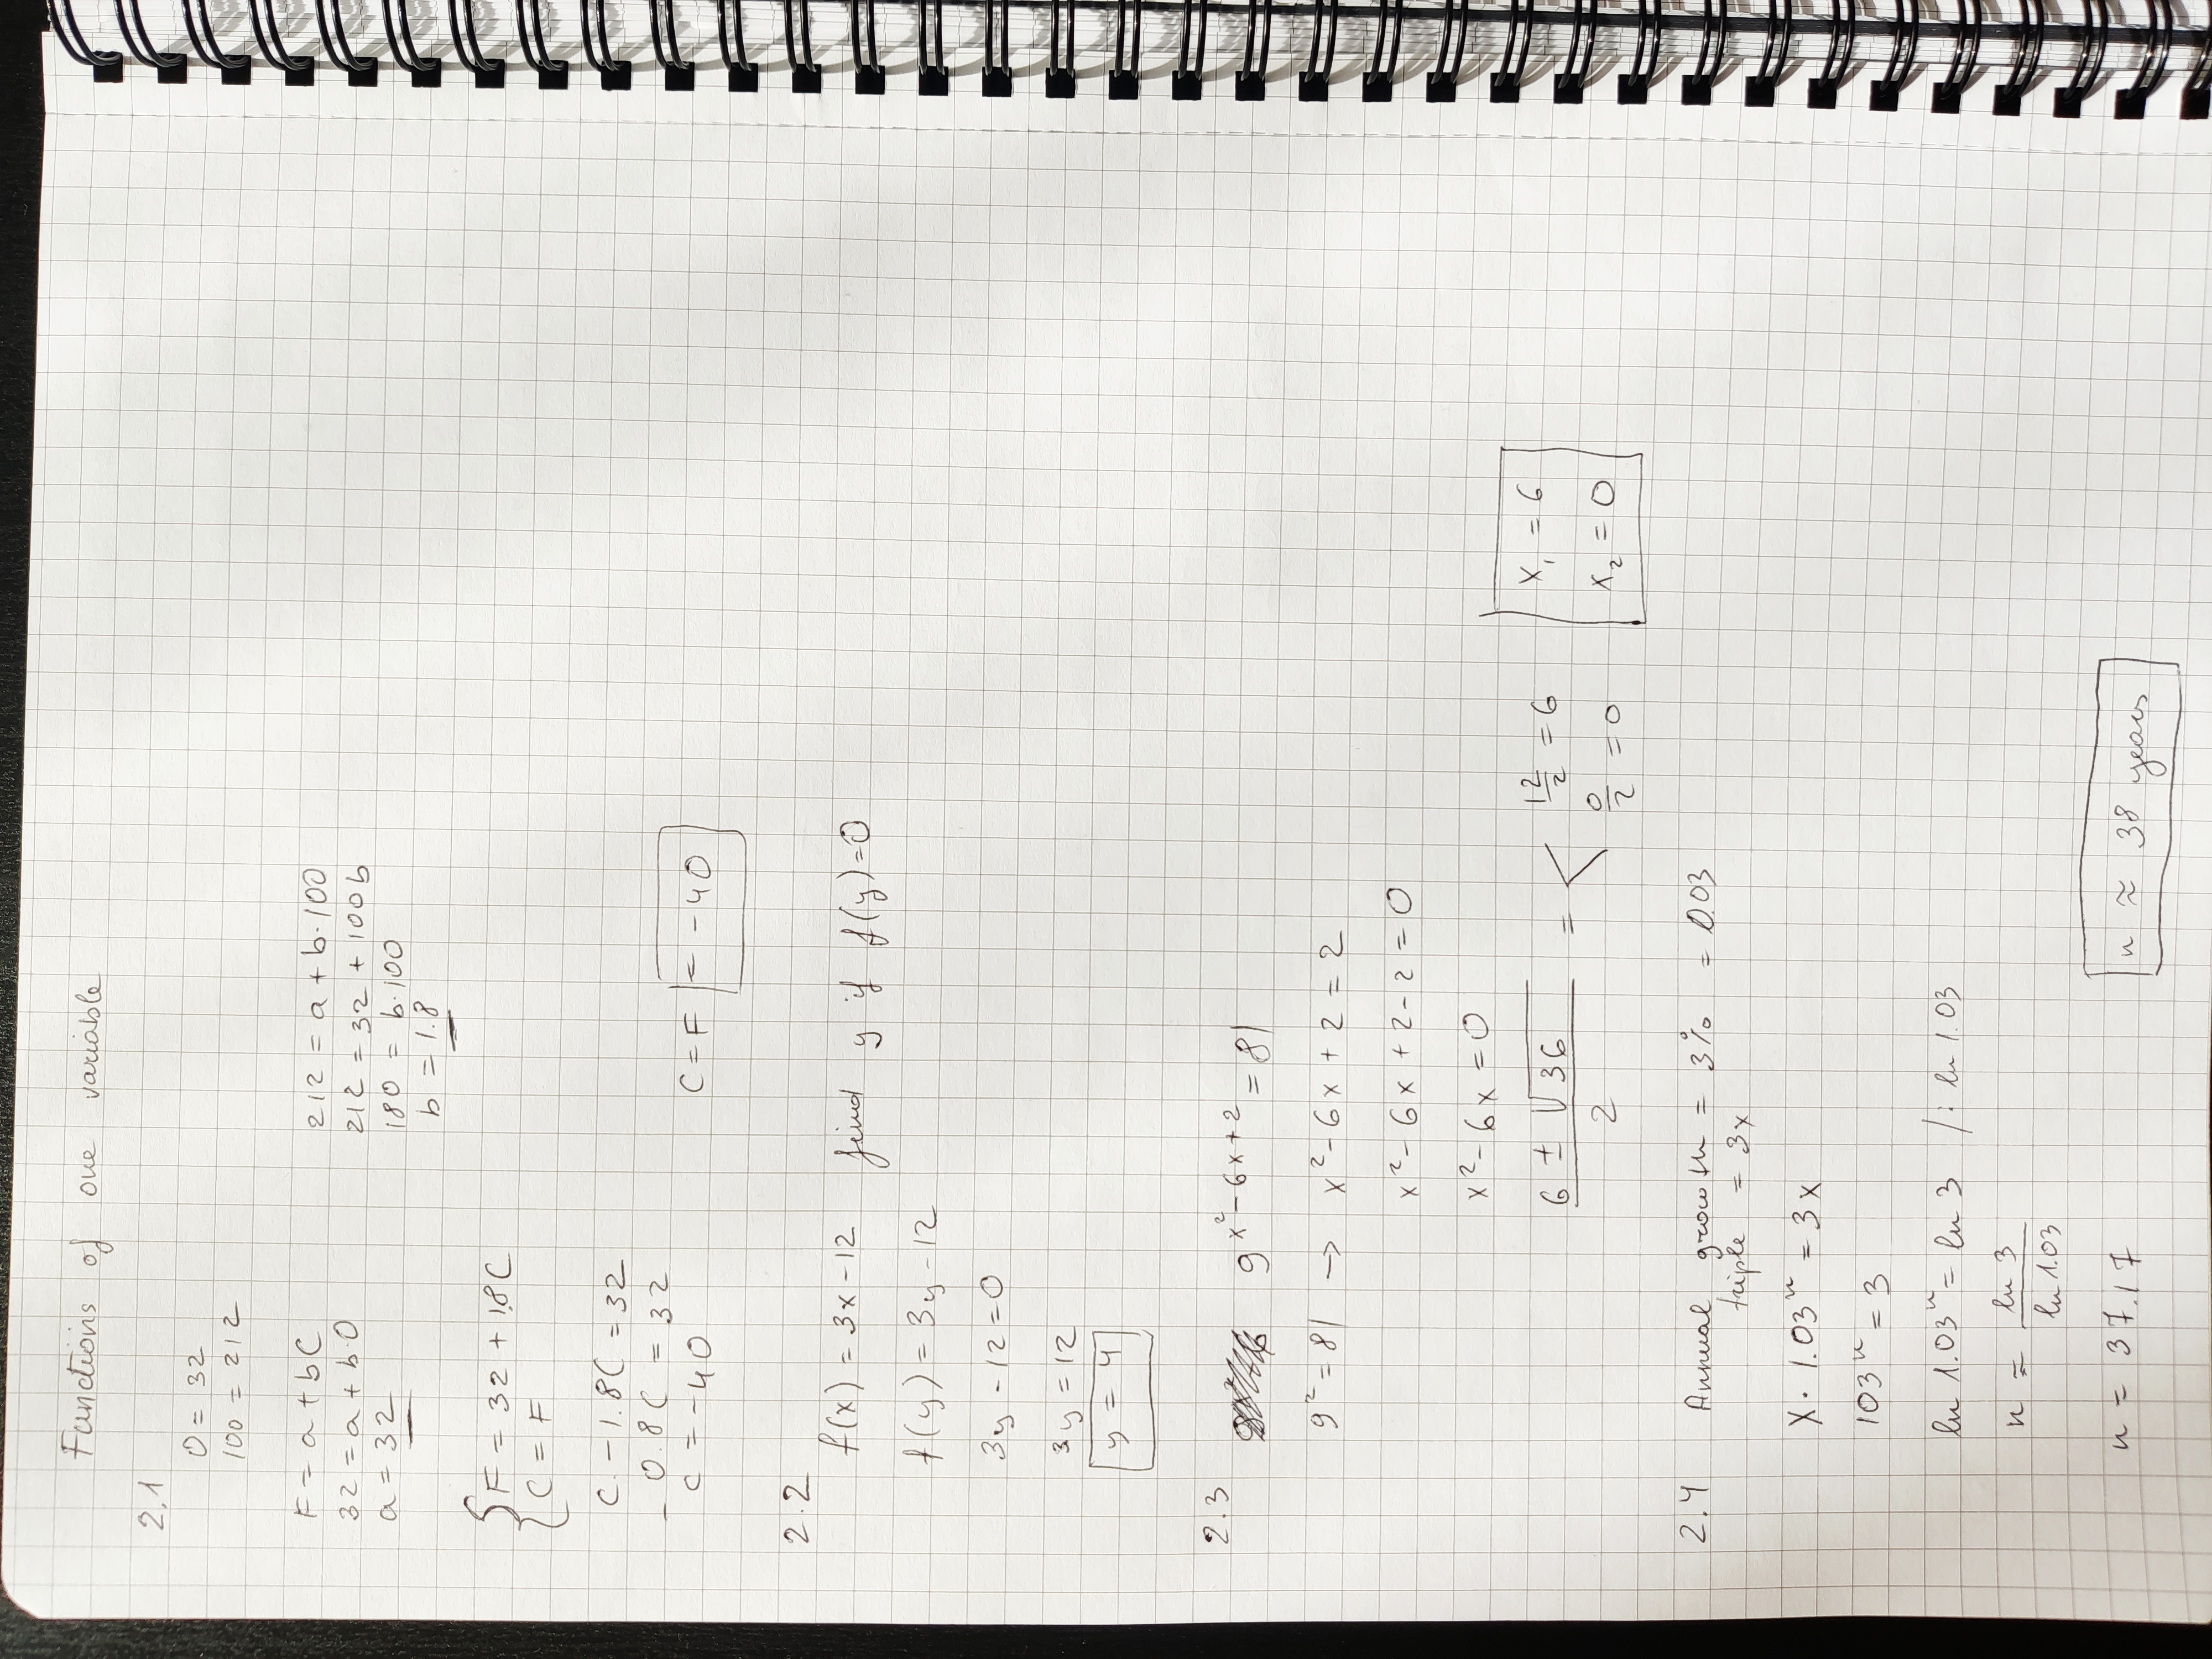 Functions of one variable
2.1
0 = 32
100 = 212
F = a + bC
32 = a + b·0
a = 32
212 = a + b·100
212 = 32 + 100b
180 = b·100
b = 1.8
F = 32 + 1.8C
C = F
C - 1.8C = 32
- 0.8C = 32
C = -40
C = F = -40
2.2
f(x) = 3x - 12 find y if f(y) = 0
f(y) = 3y - 12
3y - 12 = 0
3y = 12
y = 4
2.3
9^(x² - 6x + 2) = 81
9² = 81 → x² - 6x + 2 = 2
x² - 6x + 2 - 2 = 0
x² - 6x = 0
(6 ± √36) / 2 = < 12/2 = 6
0/2 = 0
x₁ = 6
x₂ = 0
2.4 Annual growth = 3% = 0.03
triple = 3x
X · 1.03ⁿ = 3x
103ⁿ = 3
ln 1.03ⁿ = ln 3 /: ln 1.03
n = ln 3 / ln 1.03
n = 37.17
n ≈ 38 years